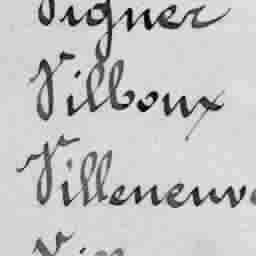 Vigner
Vilboux
Villeneuv